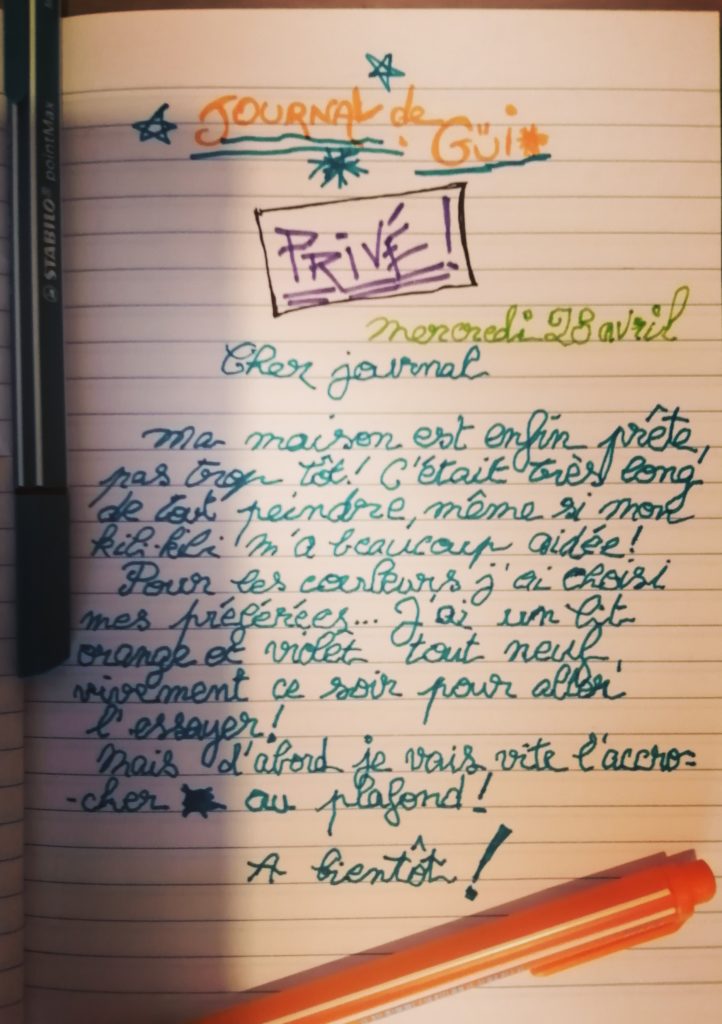 JOURNAL de
Güi
PRIVÉ!
mercredi 28 avril
Cher journal
Ma maison est enfin prête,
pas trop tôt! C'était très long
de tout peindre, même si mon
kili-kili m'a beaucoup aidée!
Pour les couleurs j'ai choisi
mes préférées... J'ai un lit
orange et violet tout neuf,
vivement ce soir pour aller
l'essayer!
Mais d'abord je vais vite l'accro=
-cher au plafond!
A bientôt!
STABILO® pointMax